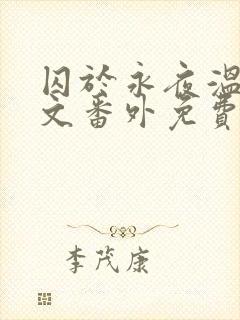 囚於永夜温
文番外免費
李茂康